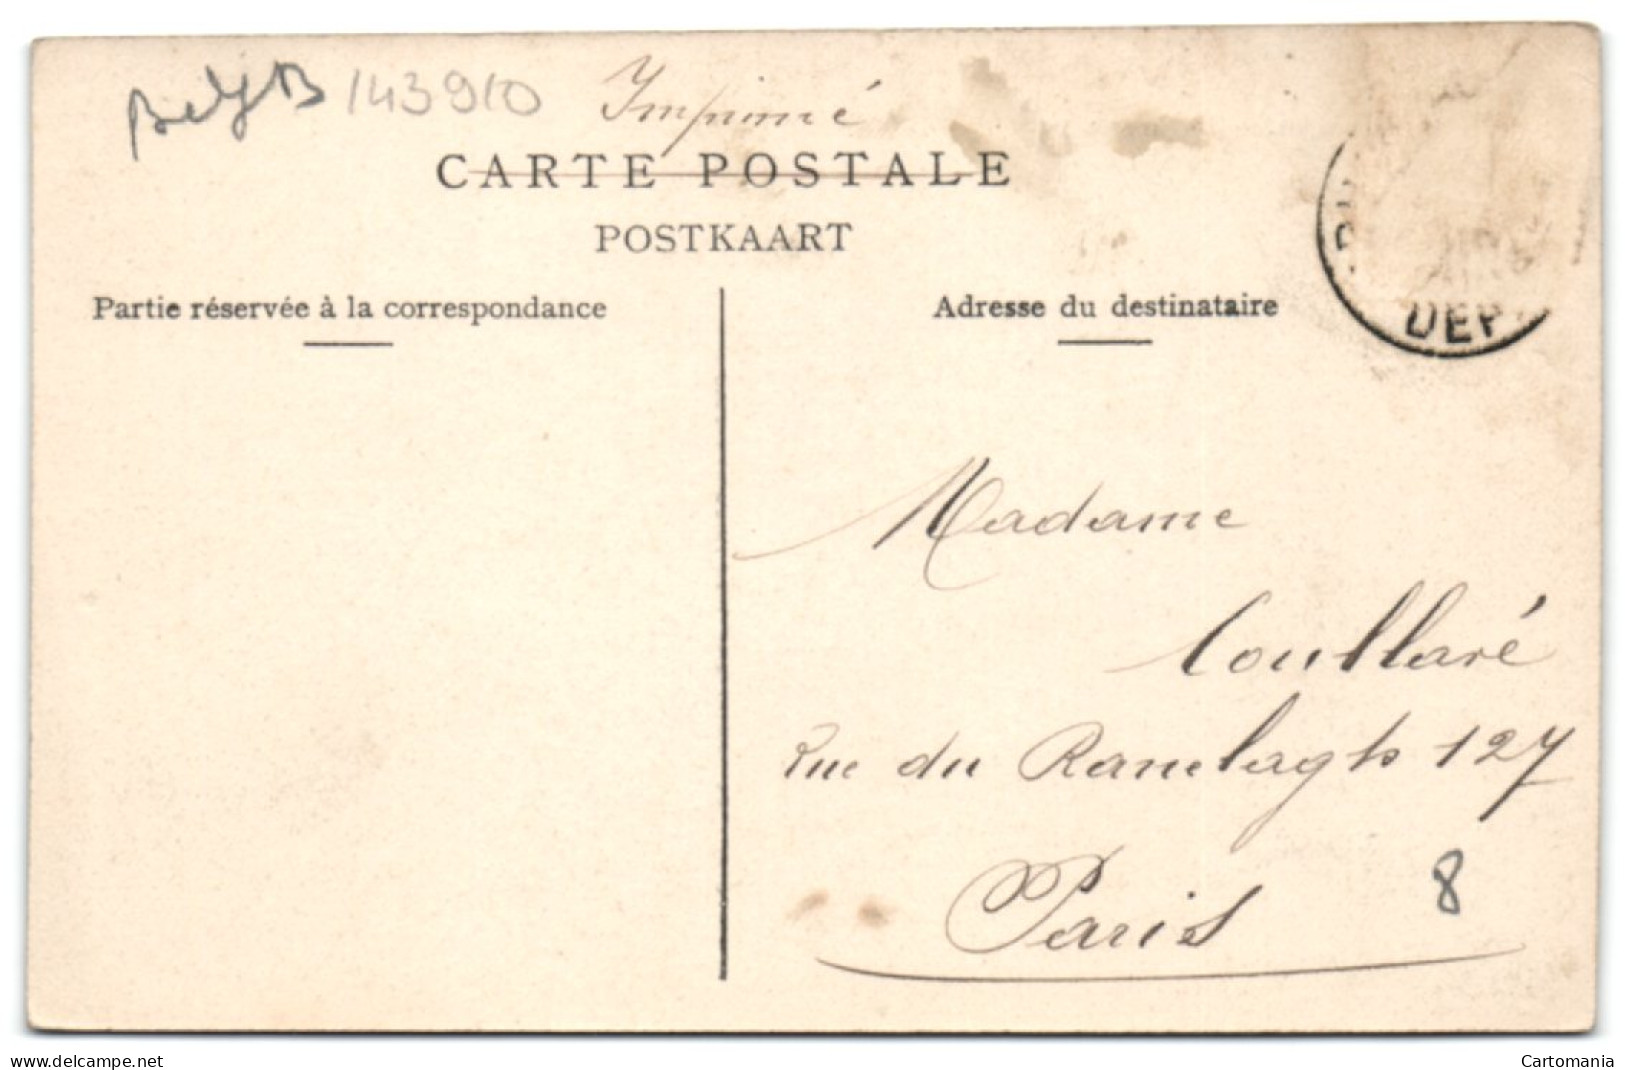 BelgB 143910 Imprimé
CARTE POSTALE
POSTKAART
Partie réservée à la correspondance
Adresse du destinataire
DEP
Madame
Coullaré
Rue du Ranelagh 127
Paris
8
www.delcampe.net
Cartomania